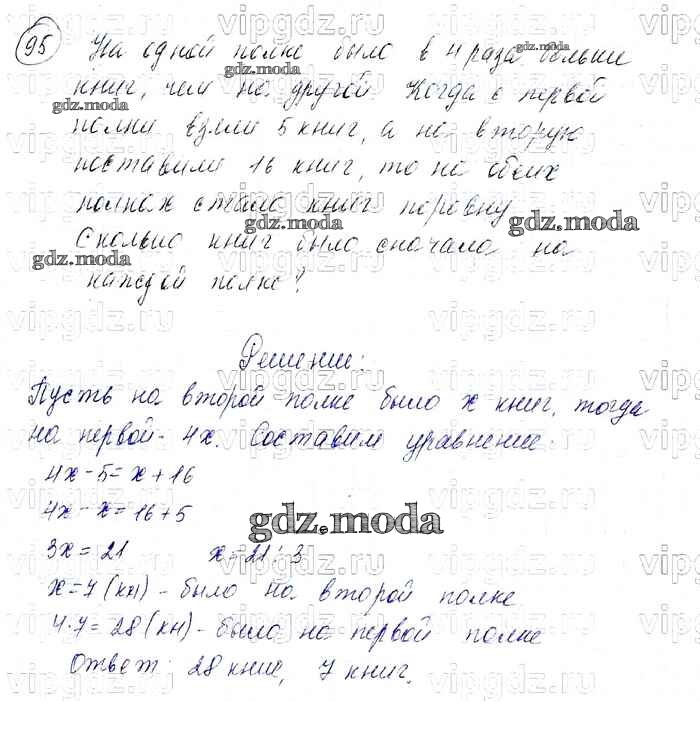 95 На одной полке было в 4 раза больше
книг, чем на другой Когда с первой
полки взяли 5 книг, а на вторую
поставили 16 книг, то на обеих
полках стало книг поровну
Сколько книг было сначала на
каждой полке?
Решение:
Пусть на второй полке было x книг, тогда
на первой - 4x. Составим уравнение.
4x-5=x+16
4x-x=16+5
3x=21 x=21:3
x=7 (кн) - было на второй полке
4·7=28 (кн) - было на первой полке
Ответ: 28 книг, 7 книг.
gdz.moda
gdz.moda
gdz.moda
gdz.moda
gdz.moda
gdz.moda
gdz.moda
vipgdz.ru